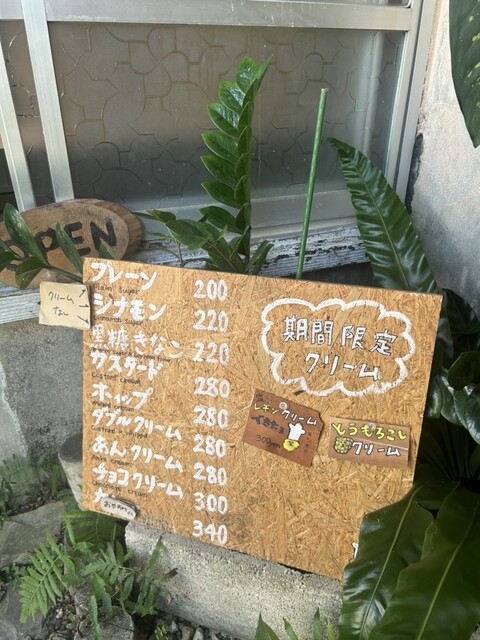 OPEN
クリーム
なし
プレーン 200
Plain sugar
シナモン 220
黒糖きなこ 220
カスタード 280
ホイップ 280
ダブルクリーム 280
あんクリーム 280
チョコクリーム 300
340
期間限定
クリーム
レモンクリーム
できたよ
300円
とうもろこし
クリーム